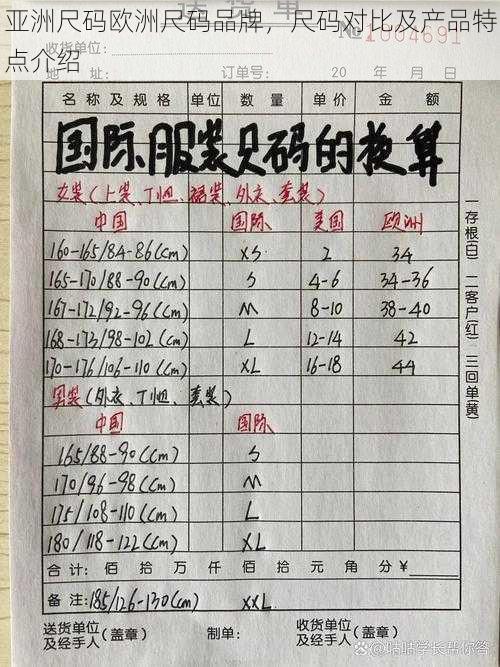 亚洲尺码欧洲尺码品牌，尺码对比及产品特点介绍
送货单
№1004691
地址：
订单号：
20 年 月 日
名称及规格 单位 数量 单价 金额
国际服装尺码的换算
女装(上装、T恤、裙装、外衣、套装)
中国 国际 美国 欧洲
160-165/84-86(cm) XS 2 34
165-170/88-90(cm) S 4-6 34-36
167-172/92-96(cm) M 8-10 38-40
168-173/98-102(cm) L 12-14 42
170-176/106-110(cm) XL 16-18 44
男装(外衣、T恤、套装)
中国 国际
165/88-90(cm) S
170/96-98(cm) M
175/108-110(cm) L
180/118-122(cm) XL
合计：佰拾万仟佰拾元角分￥
备注：185/126-130(cm) XXL
送货单位及经手人（盖章）
制单：
收货单位及经手人（盖章）
一存根(白) 二客户(红) 三回单(黄)
@咕咕学长帮你答